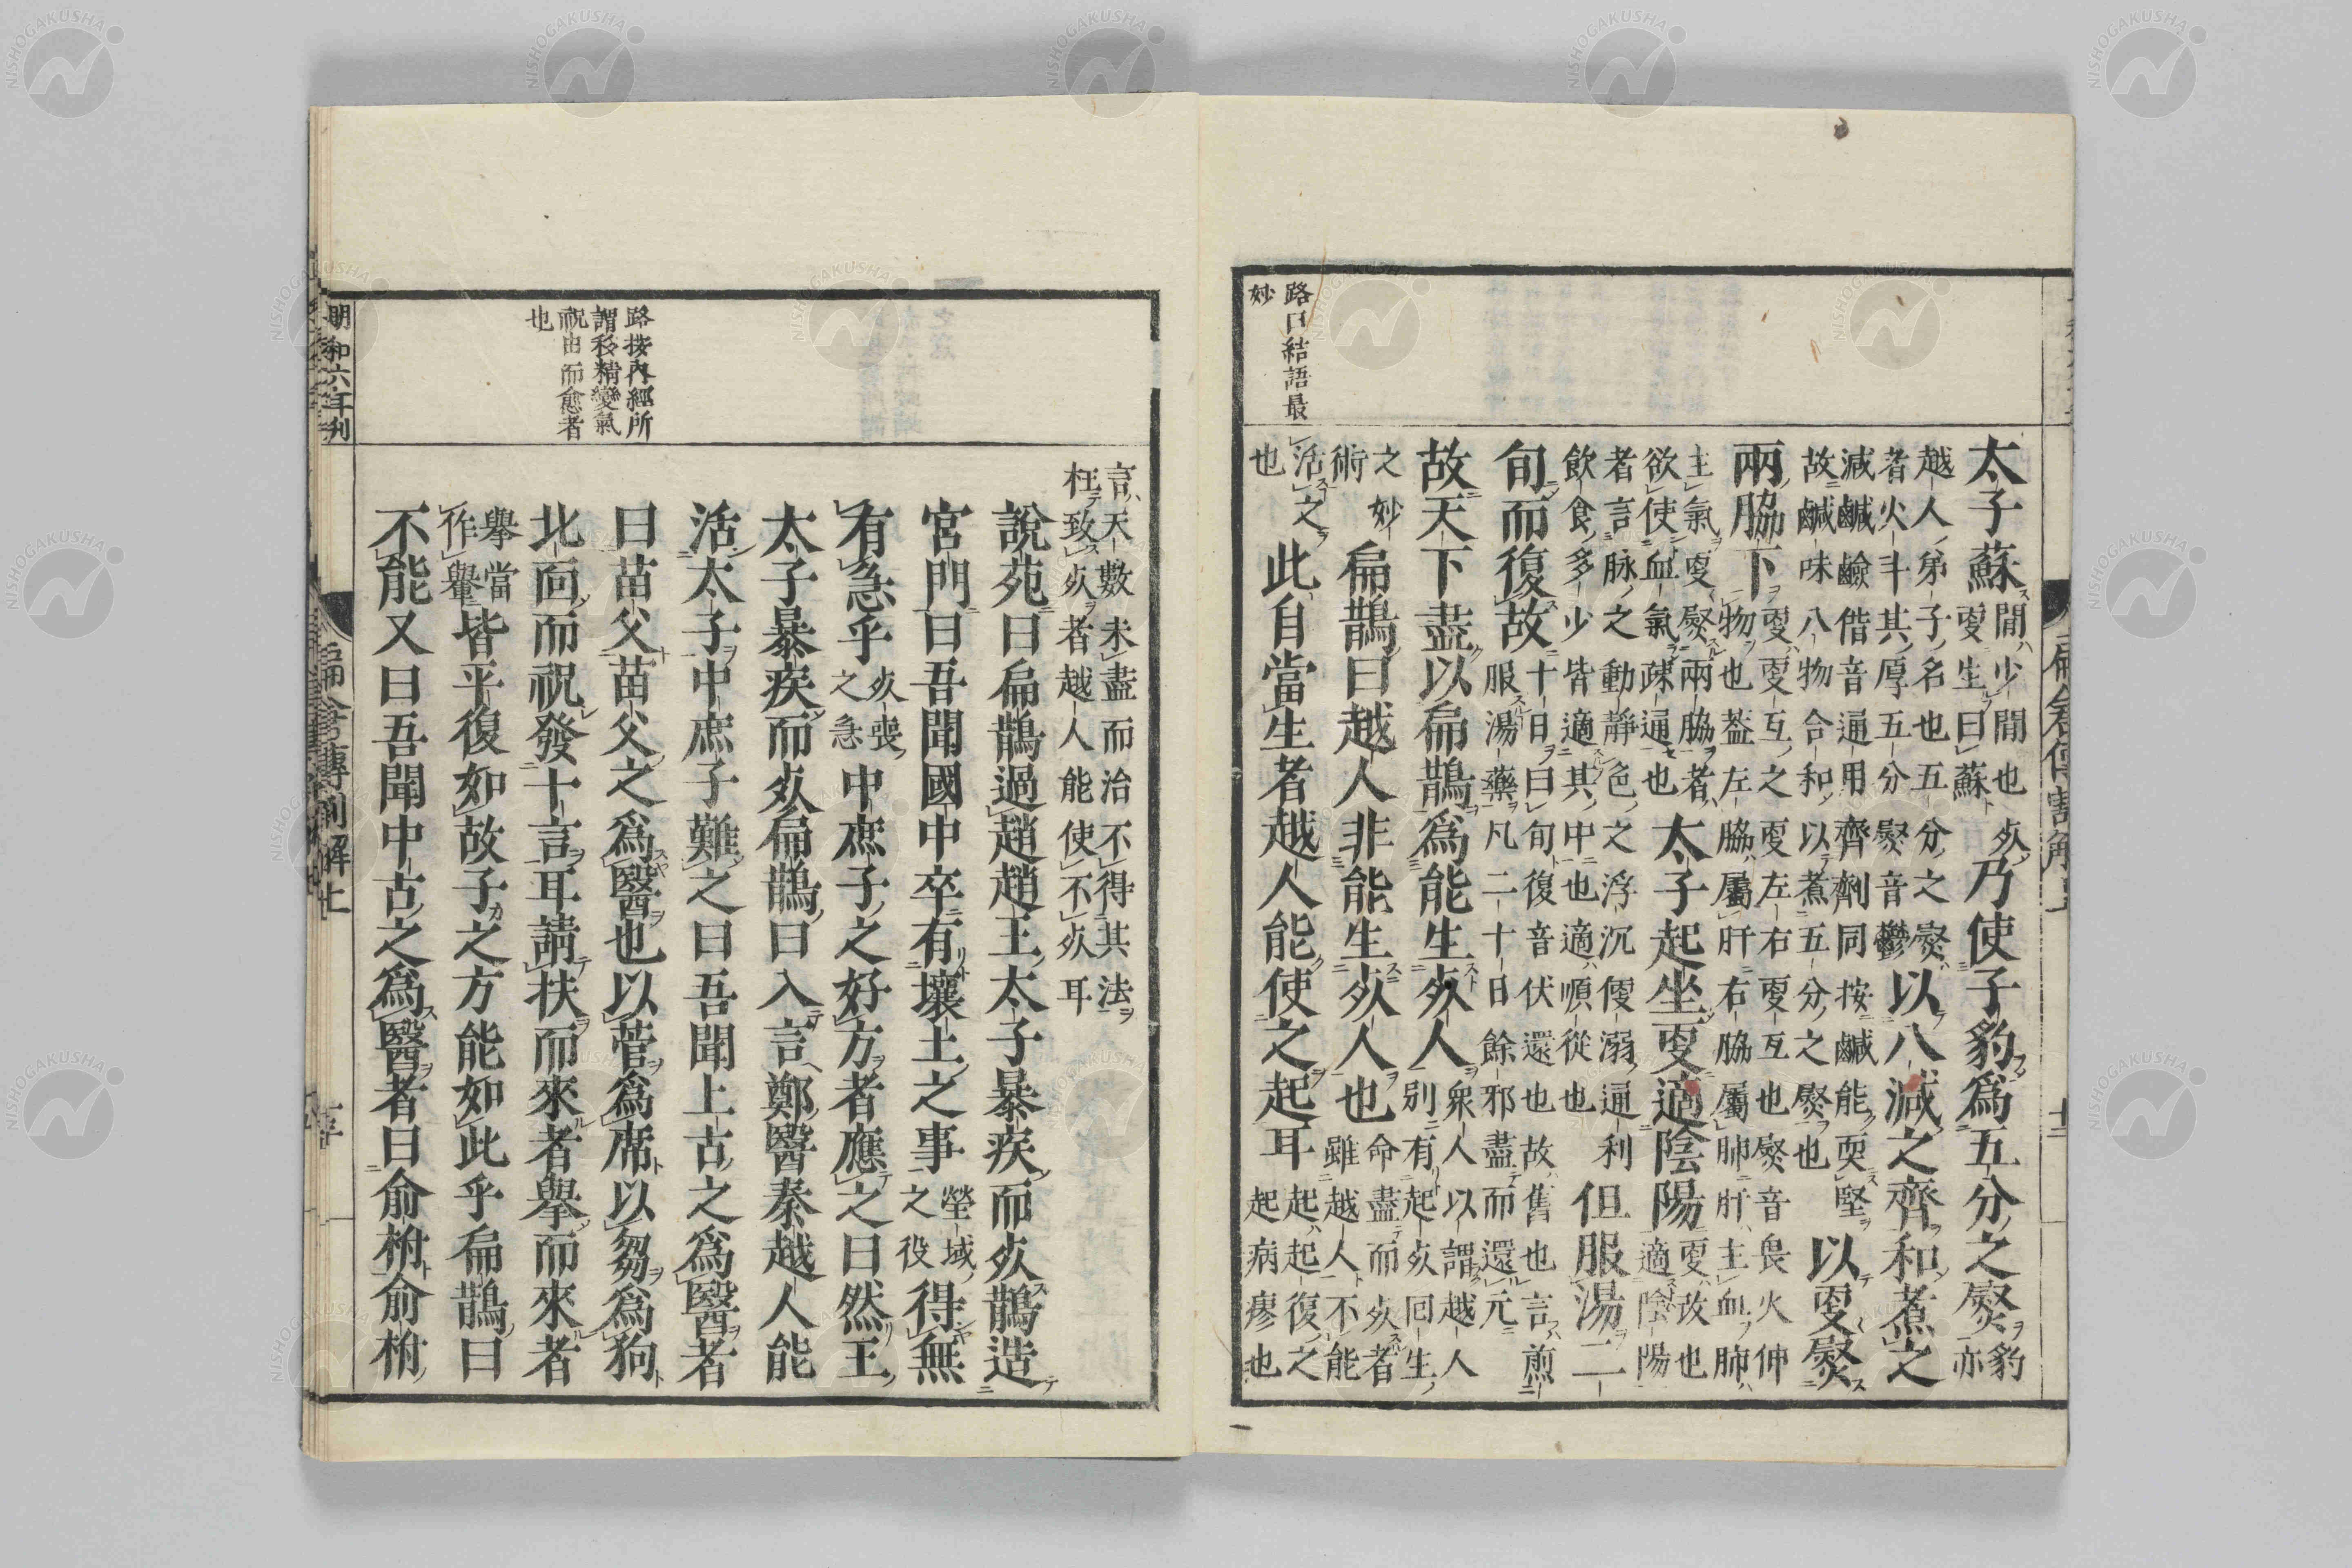 路曰結語最
妙
太子蘇間少間也死更生曰蘇乃使子豹爲五分之熨豹亦
越人弟子名也五分之熨者火斗其厚五分熨音鬱以八減之齊和煮之
減鹹鹼偕音通用齊劑同按鹹能耎堅故鹹味八物合和以煮五分之熨也以更熨
兩脇下更更互之更左右更互也熨音畏火伸物也蓋左脇屬肝右脇屬肺肝主血肺
主氣更熨兩脇者欲使血氣疎通也太子起坐更適陰陽更改也適陰陽
者言脉之動靜色之浮沉便溺通利飲食多少皆適其中也適順從也但服湯二
旬而復故十日曰旬復音伏還也故舊也言煎服湯藥凡二十日餘邪盡而還元
故天下盡以扁鵲爲能生死人衆人以謂越人別有起死回生
之妙術扁鵲曰越人非能生死人也命盡而死者雖越人不能
活之也此自當生者越人能使之起耳起起復之起病瘳也
路按內經所
謂移精變氣
祝由而愈者
也
言天數未盡而治不得其法枉致死者越人能使不死耳
說苑曰扁鵲過趙趙王太子暴疾而死鵲造
宮門曰吾聞國中卒有壤土之事塋域之役得無
有急乎死喪之急中庶子之好方者應之曰然王
太子暴疾而死扁鵲曰入言鄭醫秦越人能
活太子中庶子難之曰吾聞上古之爲醫者
曰苗父苗父之爲醫也以菅爲席以芻爲狗
北面而祝發十言耳請扶而來者舉而來者
舉當作轝皆平復如故子之方能如此乎扁鵲曰
不能又曰吾聞中古之爲醫者曰俞柎俞柎
明和六年刊
扁倉傳割解上